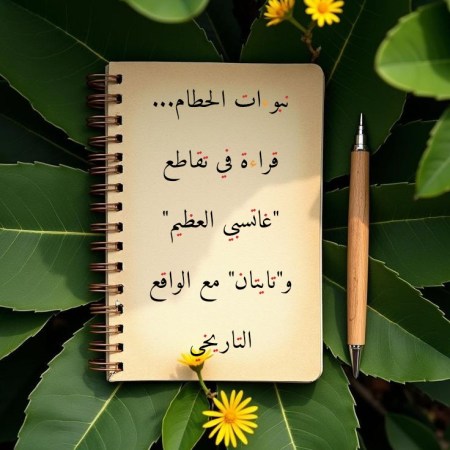 نبوءات الحطام...
قراءة في تقاطع
"غاتسبي العظيم"
و"تايتان" مع الواقع
التاريخي